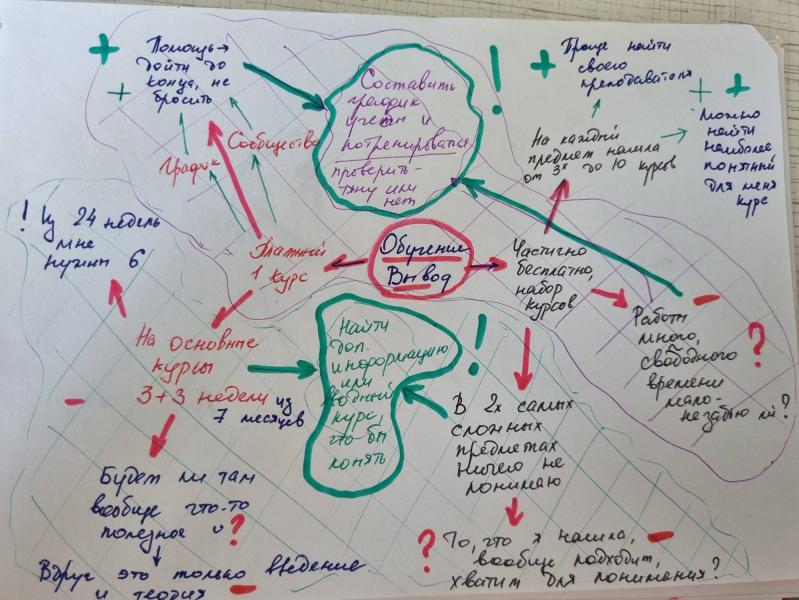 Помощь →
дойти до
конца, не
бросить
График
Сообщество
Составить
график
учёты и
потренироваться
проверить -
тяну или
нет
!
Проще найти
своего
преподавателя
На каждый
предмет нашла
от 3х до 10 курсов
Можно
найти
наиболее
понятный
для меня
курс
! Из 24 недель
мне
нужны 6
Платный
1 курс
Обучение
Вывод
Частично
бесплатно,
набор
курсов
Работы
много,
свободного
времени
мало -
не забью ли?
?
На основные
курсы
3+3 недели из
7 месяцев
Найти
доп.
информацию
или
водный
курс,
что бы
понять
!
В 2х самых
сложных
предметах
ничего не
понимаю
Будет ли там
вообще что-то
полезное
?
Вдруг это только введение
и теория
? То, что я нашла,
вообще подходит,
хватит для понимания?